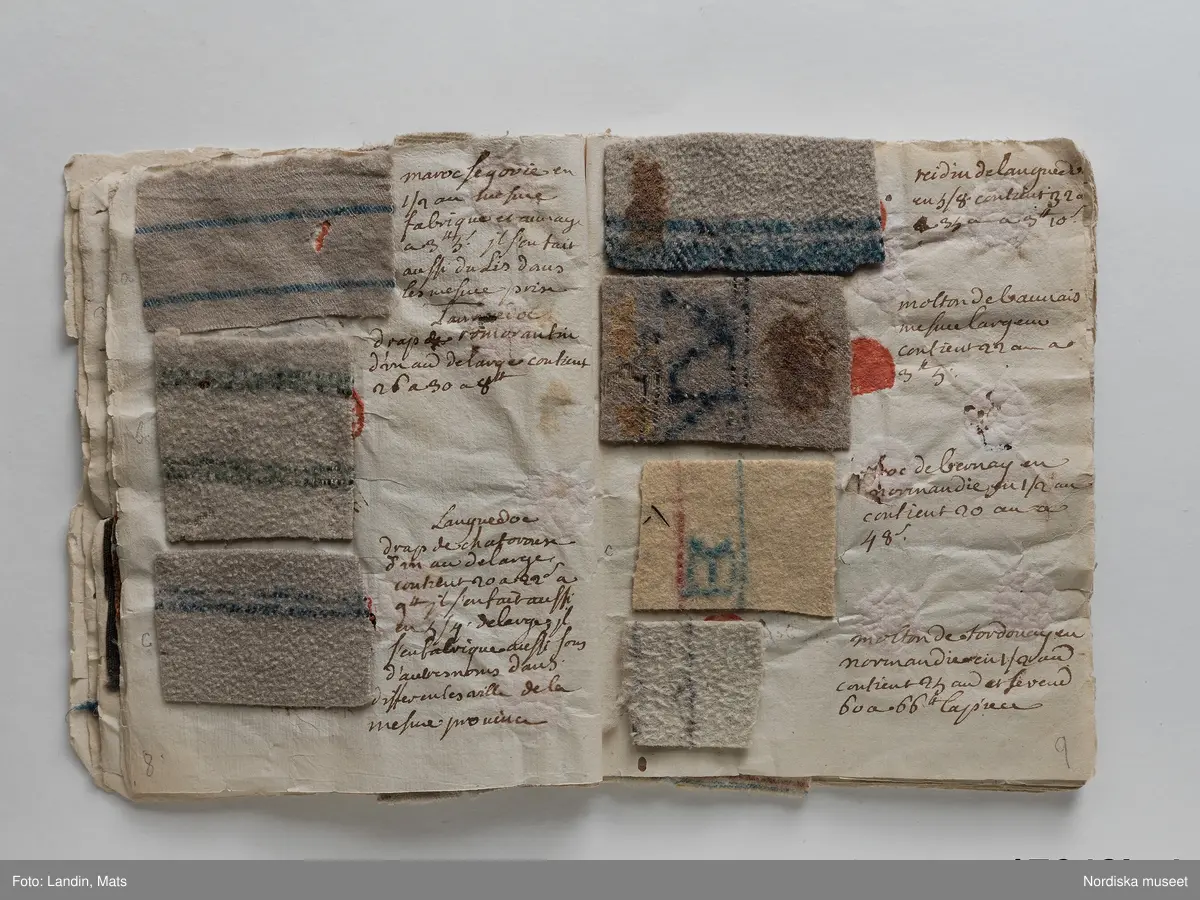 maroc segovie en
1/2 au mesme
fabrique et auvray
a 3tt 5s jl s'en fait
aussi du Lis dans
les mesme prise
Languedoc
drap de romorantin
d'un au de large contient
26 a 30 a 8tt
Languedoc
drap de chatoroux
d'un au de large
contient 20 a 22 a
jl s'en fait aussi
en de large jl
s'en fabrique aussi sous
d'autre noms dans
differentes ville de la
mesme province
8
B
C
reidin de languedoc
en 5/8 contient 32 a
a 3tt 10s
molton de bauuais
mesme largeur
contient 22 au a
3tt 5s
de bernay en
normandie en 1/2 au
contient 20 au a
48s
C
molton de tordouay en
normandie en 1/2 au
contient 25 au et se vend
60 a 66tt la piece
9
Foto: Landin, Mats
Nordiska museet